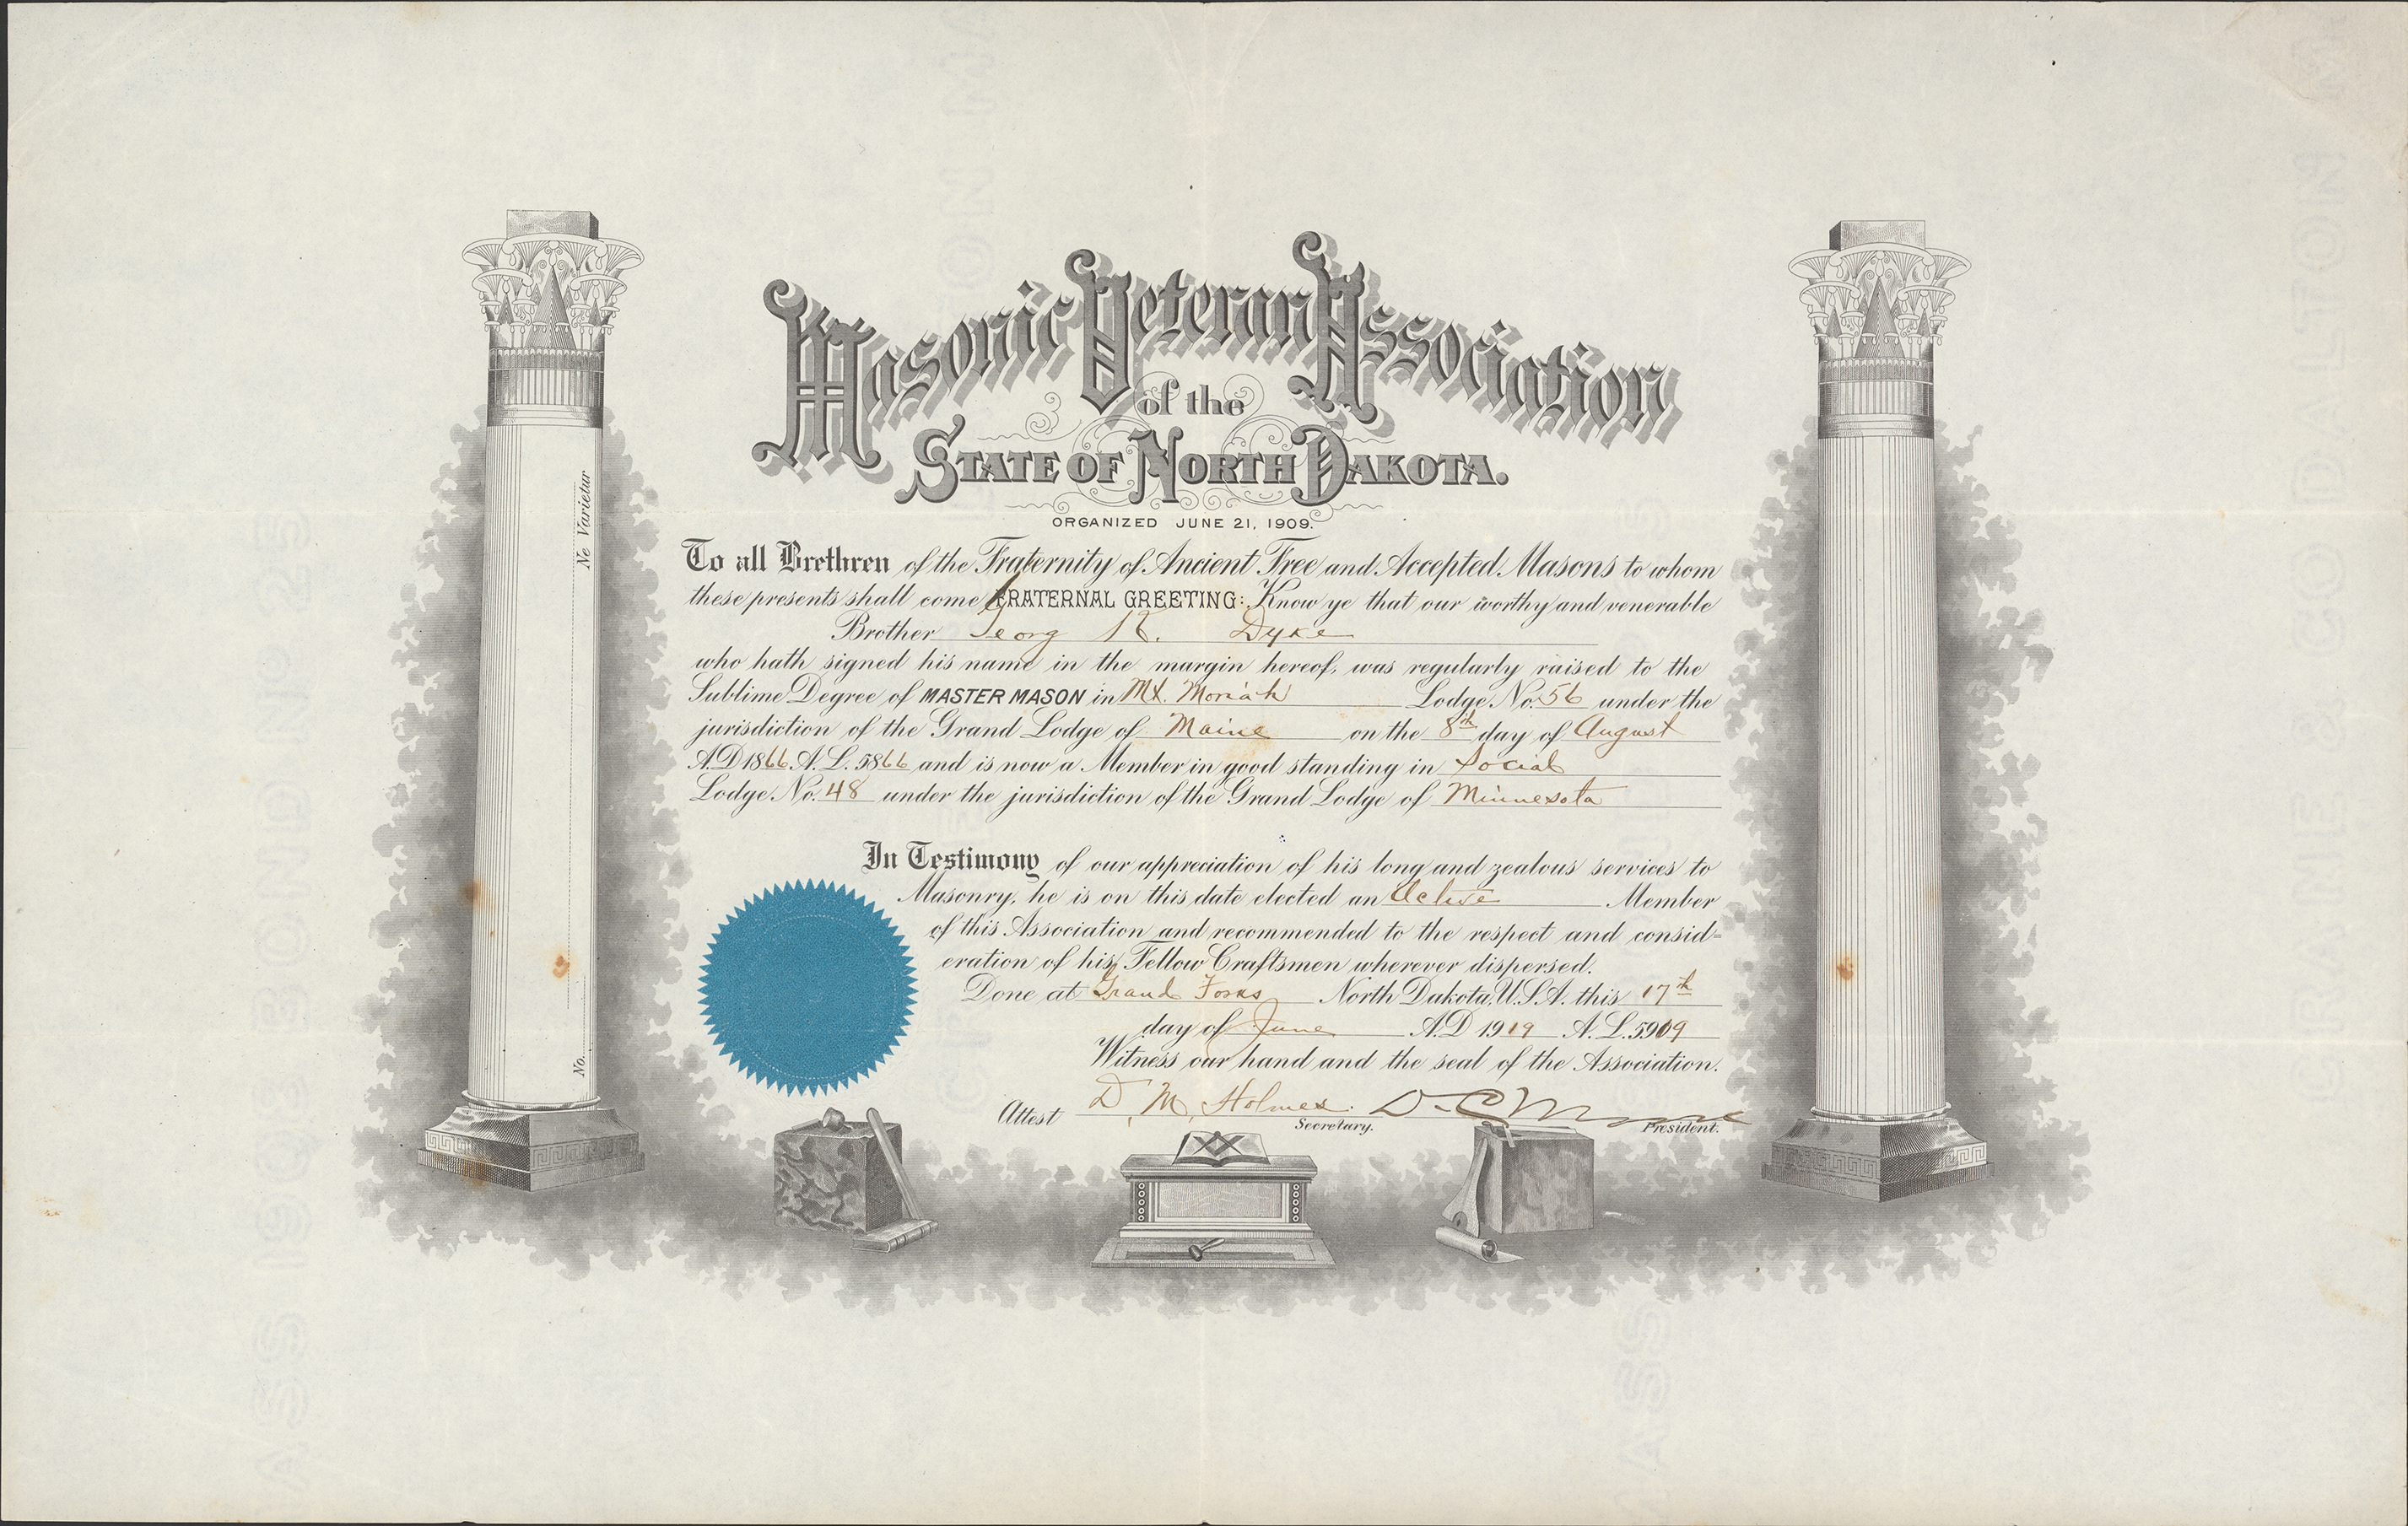 Masonic Veteran Association
of the
STATE OF NORTH DAKOTA.
ORGANIZED JUNE 21, 1909.
To all Brethren of the Fraternity of Ancient Free and Accepted Masons to whom
these presents shall come FRATERNAL GREETING: Know ye that our worthy and venerable
Brother Georg R. Dyke
who hath signed his name in the margin hereof, was regularly raised to the
Sublime Degree of MASTER MASON in Mt. Moriah Lodge No. 56 under the
jurisdiction of the Grand Lodge of Maine on the 8th day of August
A.D. 1866 A.L. 5866 and is now a Member in good standing in Social
Lodge No. 48 under the jurisdiction of the Grand Lodge of Minnesota
In Testimony of our appreciation of his long and zealous services to
Masonry, he is on this date elected an Active Member
of this Association and recommended to the respect and consid=
eration of his Fellow Craftsmen wherever dispersed.
Done at Grand Forks North Dakota, U.S.A. this 17th
day of June A.D. 1919 A.L. 5919
Witness our hand and the seal of the Association.
Attest D. M. Holmes D. C. Moore
Secretary. President.
Ne Varietur
No.